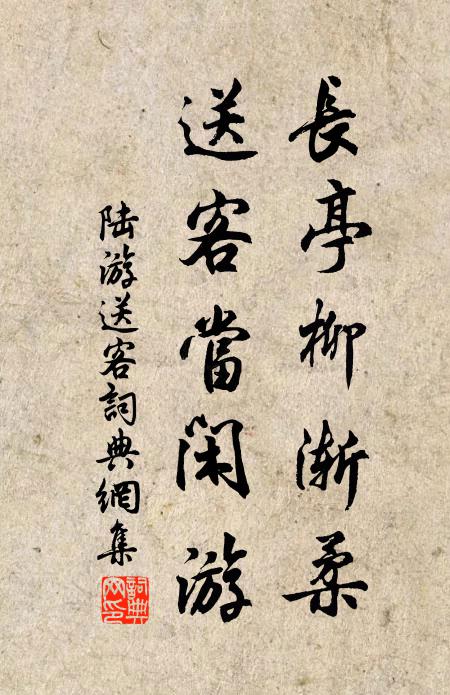 長亭柳渐柔
送客當闲游
陆游送客詞典網集
詞典